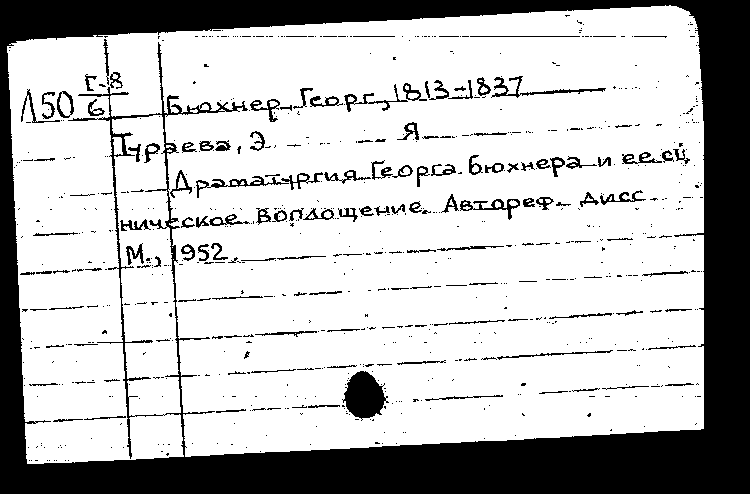 Л50 Г-8/6 Бюхнер, Георг, 1813-1837
Тураева, Э Я
Драматургия Георга Бюхнера и ее сц
ническое воплощение. Автореф. дисс
М., 1952.